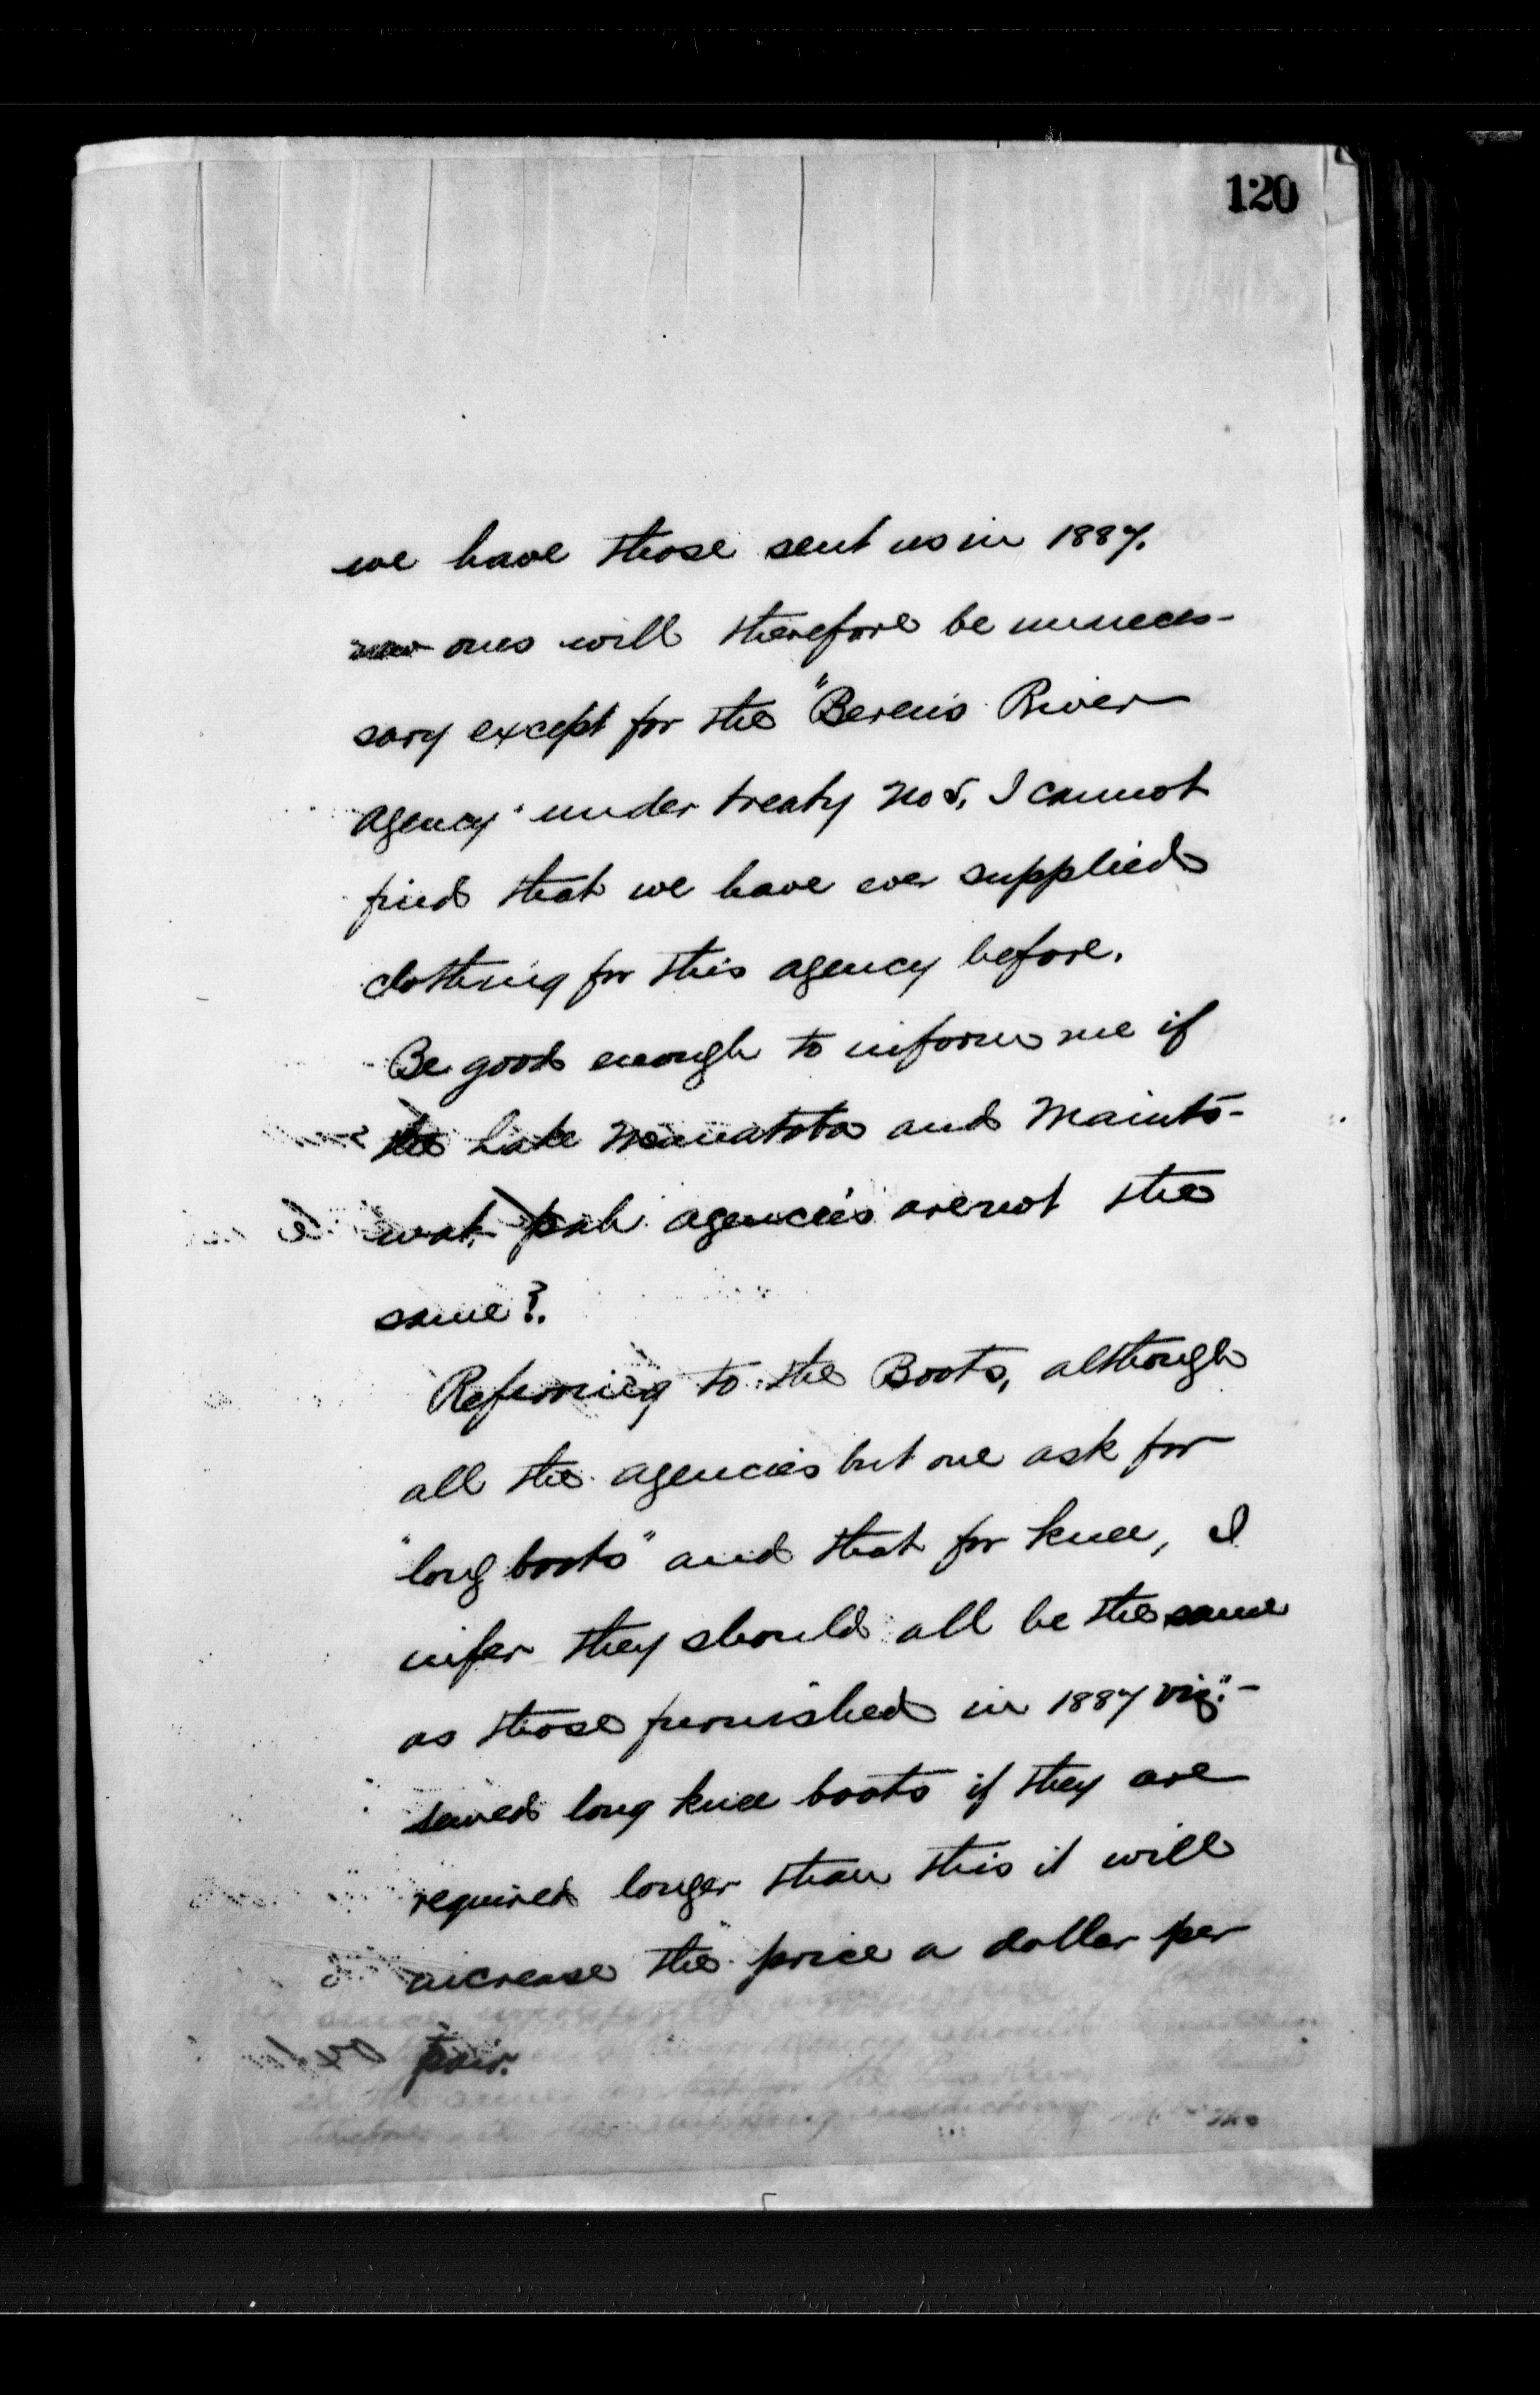 120
we have those sent us in 1887.
new ones will therefore be unneces-
sary except for the "Berens River
agency" under treaty No 5, I cannot
find that we have ever supplied
clothing for this agency before.
Be good enough to inform me if
the Lake Manatoba and Manito-
wah pah agencies are not the
same?.
Referring to the Boots, although
all the agencies but one ask for
"long boots" and that for knee, I
infer they should all be the same
as those furnished in 1887 viz:-
sewed long knee boots if they are
required longer than this it will
increase the price a dollar per
pair.
The